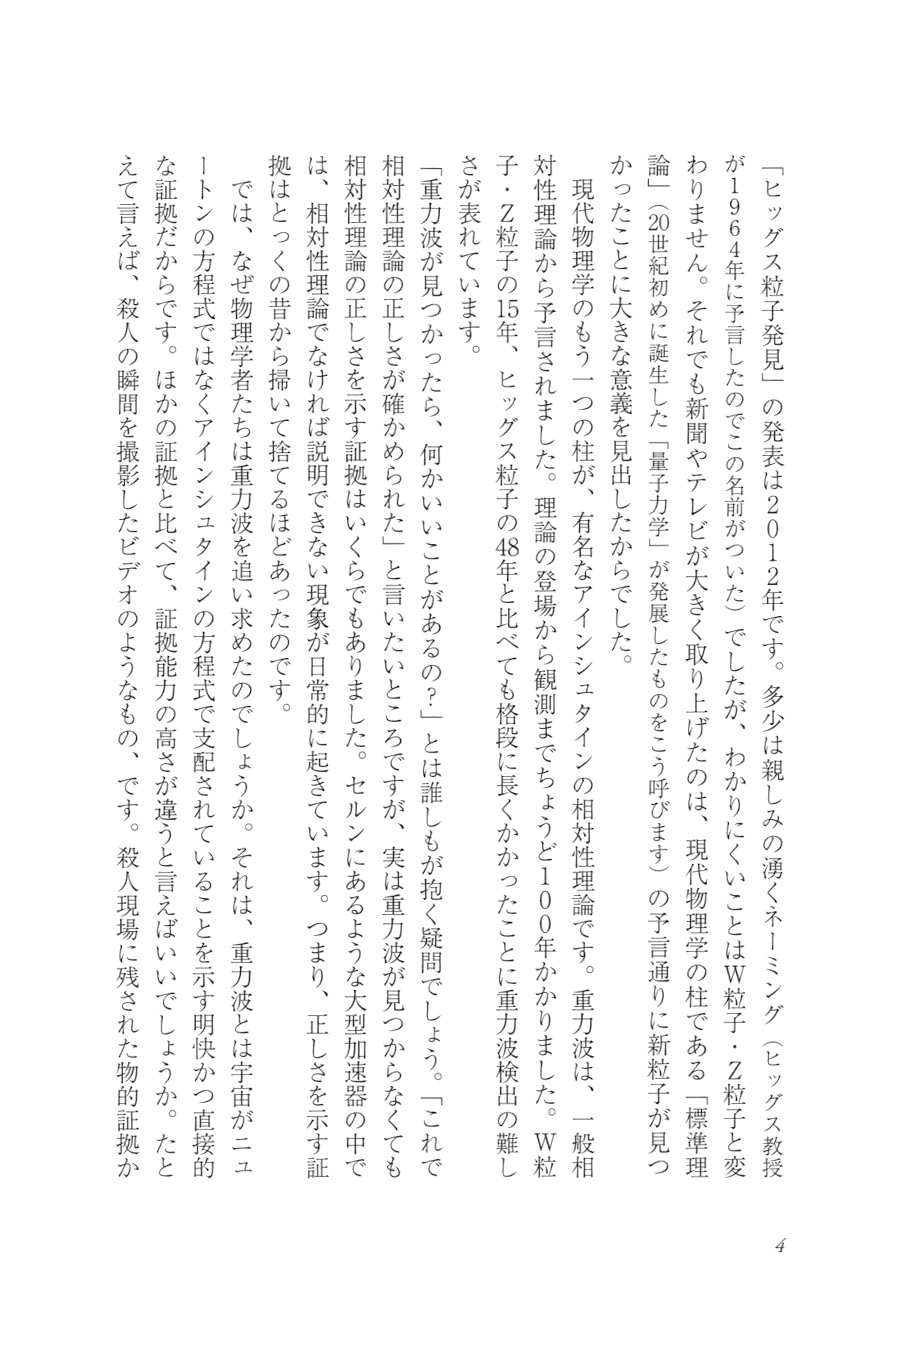 「ヒッグス粒子発見」の発表は2012年です。多少は親しみの湧くネーミング（ヒッグス教授
が1964年に予言したのでこの名前がついた）でしたが、わかりにくいことはW粒子・Z粒子と変
わりません。それでも新聞やテレビが大きく取り上げたのは、現代物理学の柱である「標準理
論」（20世紀初めに誕生した「量子力学」が発展したものをこう呼びます）の予言通りに新粒子が見つ
かったことに大きな意義を見出したからでした。
　現代物理学のもう一つの柱が、有名なアインシュタインの相対性理論です。重力波は、一般相
対性理論から予言されました。理論の登場から観測までちょうど100年かかりました。W粒
子・Z粒子の15年、ヒッグス粒子の48年と比べても格段に長くかかったことに重力波検出の難し
さが表れています。
「重力波が見つかったら、何かいいことがあるの？」とは誰しもが抱く疑問でしょう。「これで
相対性理論の正しさが確かめられた」と言いたいところですが、実は重力波が見つからなくても
相対性理論の正しさを示す証拠はいくらでもありました。セルンにあるような大型加速器の中で
は、相対性理論でなければ説明できない現象が日常的に起きています。つまり、正しさを示す証
拠はとっくの昔から掃いて捨てるほどあったのです。
　では、なぜ物理学者たちは重力波を追い求めたのでしょうか。それは、重力波とは宇宙がニュ
ートンの方程式ではなくアインシュタインの方程式で支配されていることを示す明快かつ直接的
な証拠だからです。ほかの証拠と比べて、証拠能力の高さが違うと言えばいいでしょうか。たと
えて言えば、殺人の瞬間を撮影したビデオのようなもの、です。殺人現場に残された物的証拠か
4